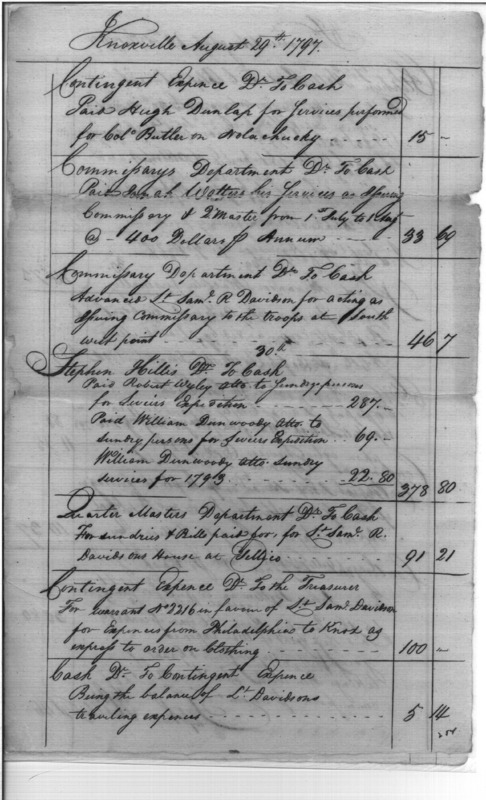 Knoxville August 29th 1797.
Contingent Expence Dr. To Cash
Paid Hugh Dunlap for Services performed
for Colo Butler on Nolachucky - - - - - 15 -
Commissarys Department Dr To Cash
Paid Wattres his Services as Issuing
Commissary & Q Master from 1st July to
@ - 400 Dollars P Annum - - - - 33 69
Commissary Department Dr To Cash
Advanced Lt Saml. R Davidson for acting as
Issuing Commissary to the troops at South
west point - - - - - 46 7
30th
Stephen Hillis Dr. To Cash
Paid Robert Wyley atto. to Sundry persons
for Seviers Expedition - - - - - 287. -
Paid William Dunwoody atto. to
sundry persons for Seviers Expedition . . 69. -
William Dunwoody atto. sundry
services for 1793 - - - - - 22. 80
378 80
Quarter Masters Department Dr To Cash
For sundries & Bills paid for, for Lt Saml. R.
Davidsons House at Tellico - - - - 91 21
Contingent Expence Dr. To the Treasurer
For warrant No 2216 in favour of Lt Saml Davidson
for Expences from Philadelphia to Knox as
express to order on Clothing - - - - - 100 -
Cash Dr. To Contingent Expence
Being the balance of Lt Davidsons
traveling expences - - - - - 5 14